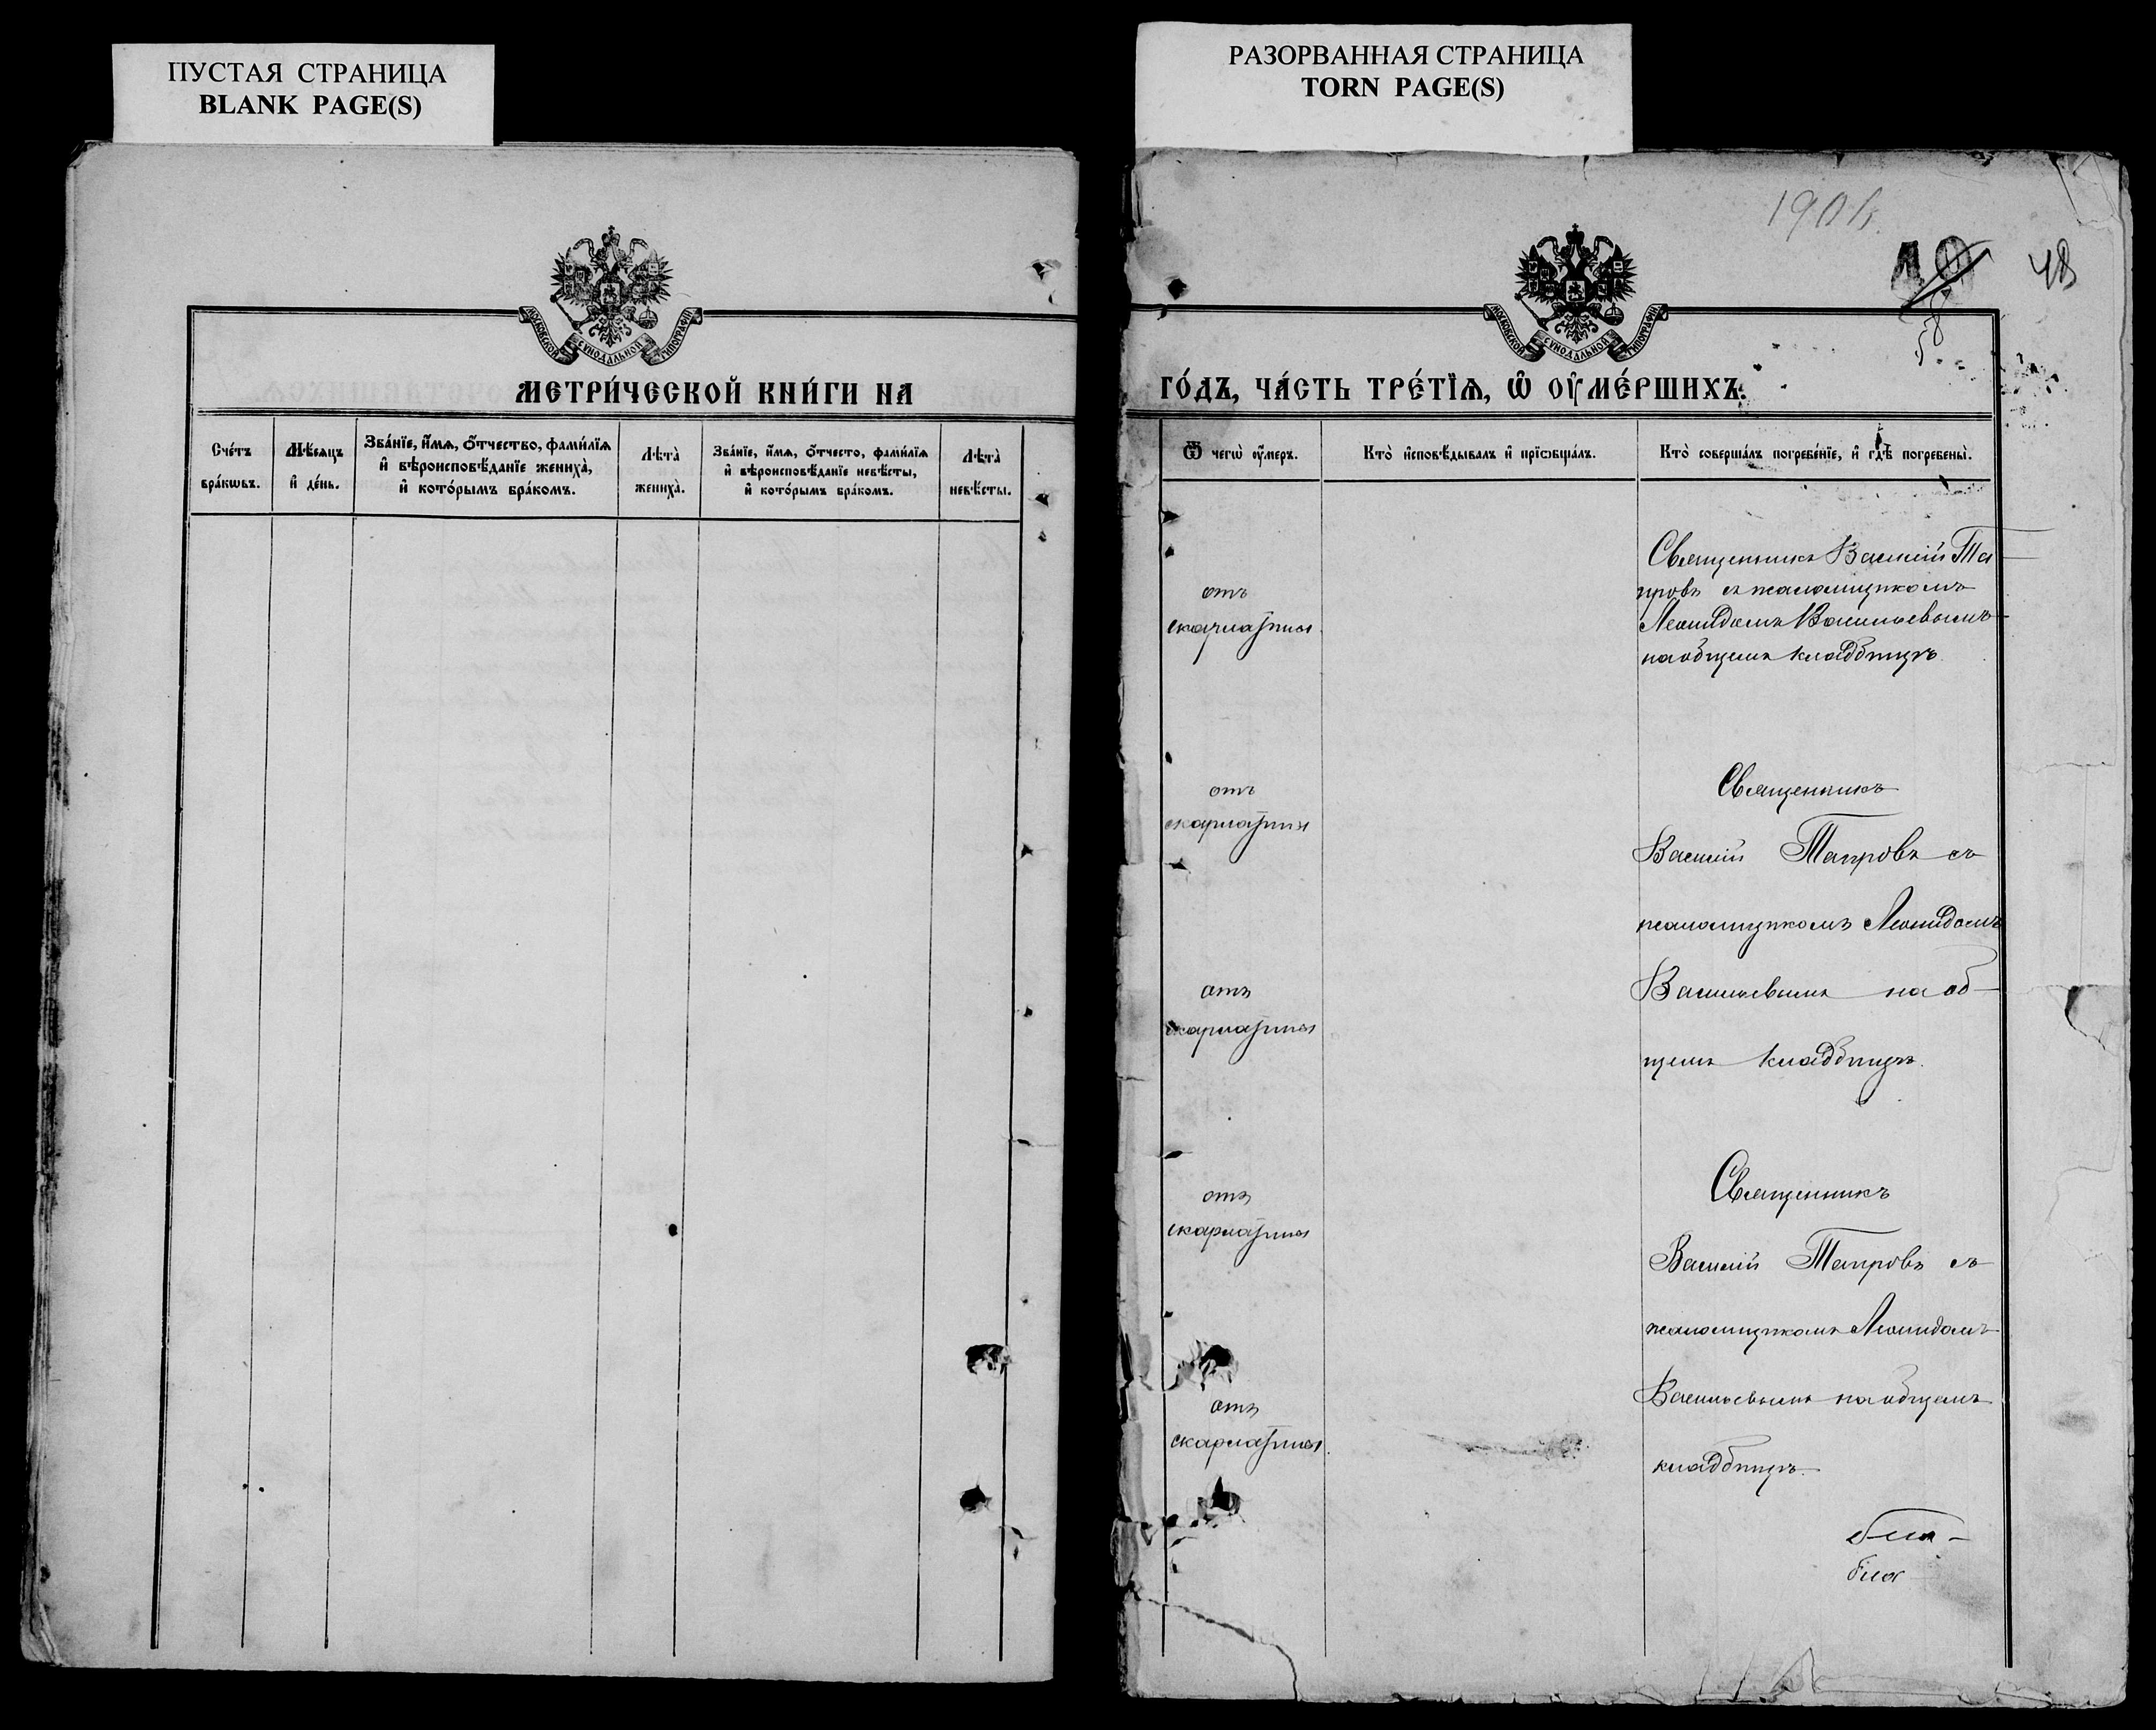 ПУСТАЯ СТРАНИЦА
BLANK PAGE(S)
МОСКОВСКОЙ СѴНОДАЛЬНОЙ ТИПОГРАФІИ
МЕТРИ́ЧЕСКОЙ КНИ́ГИ НА
Сче́тъ бра́кωвъ.
Мѣ́сяцъ и҆ де́нь.
Зва́нїе, и҆́мѧ, ѻ҆́тчество, фами́лїѧ
и҆ вѣроисповѣ́данїе жениха̀,
и҆ кото́рымъ бра́комъ.
Лѣта̀ жениха̀.
Зва́нїе, и҆́мѧ, ѻ҆́тчесто, фами́лїѧ
и҆ вѣроисповѣ́данїе невѣ́сты,
и҆ кото́рымъ бра́комъ.
Лѣта̀ невѣ́сты.
РАЗОРВАННАЯ СТРАНИЦА
TORN PAGE(S)
190
48
58
МОСКОВСКОЙ СѴНОДАЛЬНОЙ ТИПОГРАФІИ
ГО́ДЪ, ЧА́СТЬ ТРЕ́ТЇѦ, Ѡ҆ ОУ҆МЕ́РШИХЪ.
Ѿ чегѡ̀ оу҆́меръ.
Кто̀ и҆сповѣ́дывалъ и҆ прїωбща́лъ.
Кто̀ соверша́лъ погребе́нїе, и҆ гдѣ̀ погребены̀.
отъ
скарлатины
Священникъ Василій Та
провъ съ псаломщикомъ
Леонидомъ Васильевымъ
на общемъ кладбищѣ.
отъ
скарлатины
отъ
скарлатины
Священникъ
Василій Тапровъ съ
псаломщикомъ Леонидомъ
Васильевымъ на об-
щемъ кладбищѣ.
отъ
скарлатины
отъ
скарлатины.
Священникъ
Василій Тапровъ съ
псаломщикомъ Леонидомъ
Васильевымъ на общемъ
кладбищѣ.